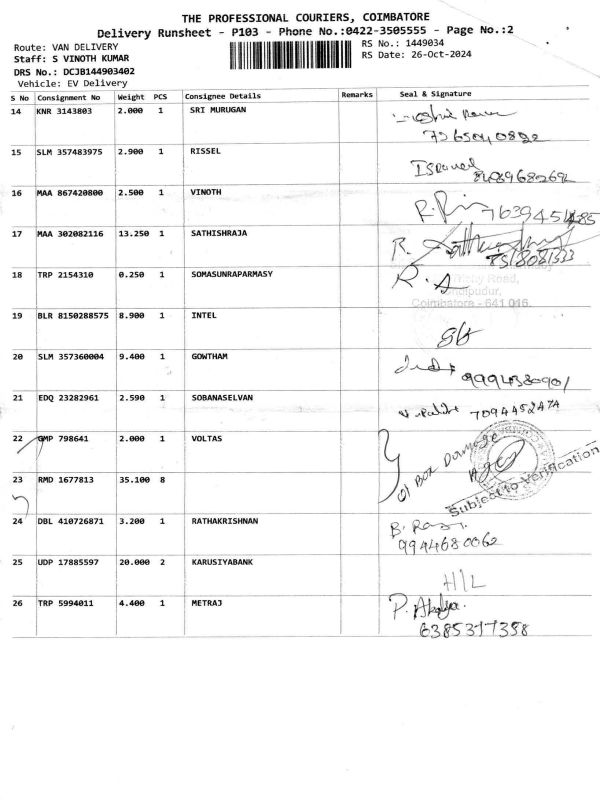 THE PROFESSIONAL COURIERS, COIMBATORE
Delivery Runsheet - P103 - Phone No.:0422-3505555 - Page No.:2
Route: VAN DELIVERY RS No.: 1449034
Staff: S VINOTH KUMAR RS Date: 26-Oct-2024
DRS No.: DCJB144903402
Vehicle: EV Delivery
S No Consignment No Weight PCS Consignee Details Remarks Seal & Signature
14 KNR 3143803 2.000 1 SRI MURUGAN
15 SLM 357483975 2.900 1 RISSEL
16 MAA 867420800 2.500 1 VINOTH
7639451485
17 MAA 302082116 13.250 1 SATHISHRAJA
R.
18 TRP 2154310 0.250 1 SOMASUNRAPARMASY
R.
Coimbatore - 641 016.
19 BLR 8150288575 8.900 1 INTEL
20 SLM 357360004 9.400 1 GOWTHAM
21 EDQ 23282961 2.590 1 SOBANASELVAN
7094452474
22 GMP 798641 2.000 1 VOLTAS
01 Box Damage
23 RMD 1677813 35.100 8
Subject to Verification
24 DBL 410726871 3.200 1 RATHAKRISHNAN
9944680062
25 UDP 17885597 20.000 2 KARUSIYABANK
H/L
26 TRP 5994011 4.400 1 METRAJ
6385317358